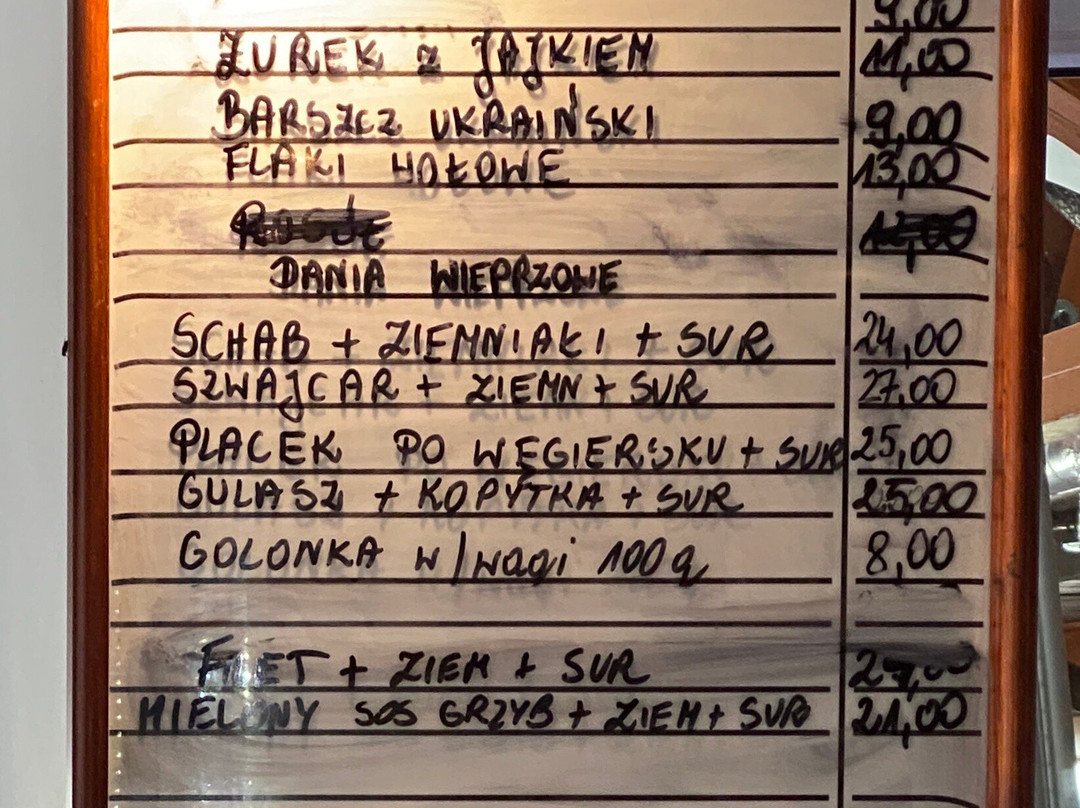 9,00
ŻUREK z JAJKIEM 11,00
BARSZCZ UKRAIŃSKI 9,00
FLAKI WOŁOWE 13,00
DANIA WIEPRZOWE
SCHAB + ZIEMNIAKI + SUR 24,00
SZWAJCAR + ZIEMN + SUR 27,00
PLACEK PO WĘGIERSKU + SUR 25,00
GULASZ + KOPYTKA + SUR 25,00
GOLONKA w/wagi 100g 8,00
FILET + ZIEM + SUR
MIELONY SOS GRZYB + ZIEM + SUR 21,00